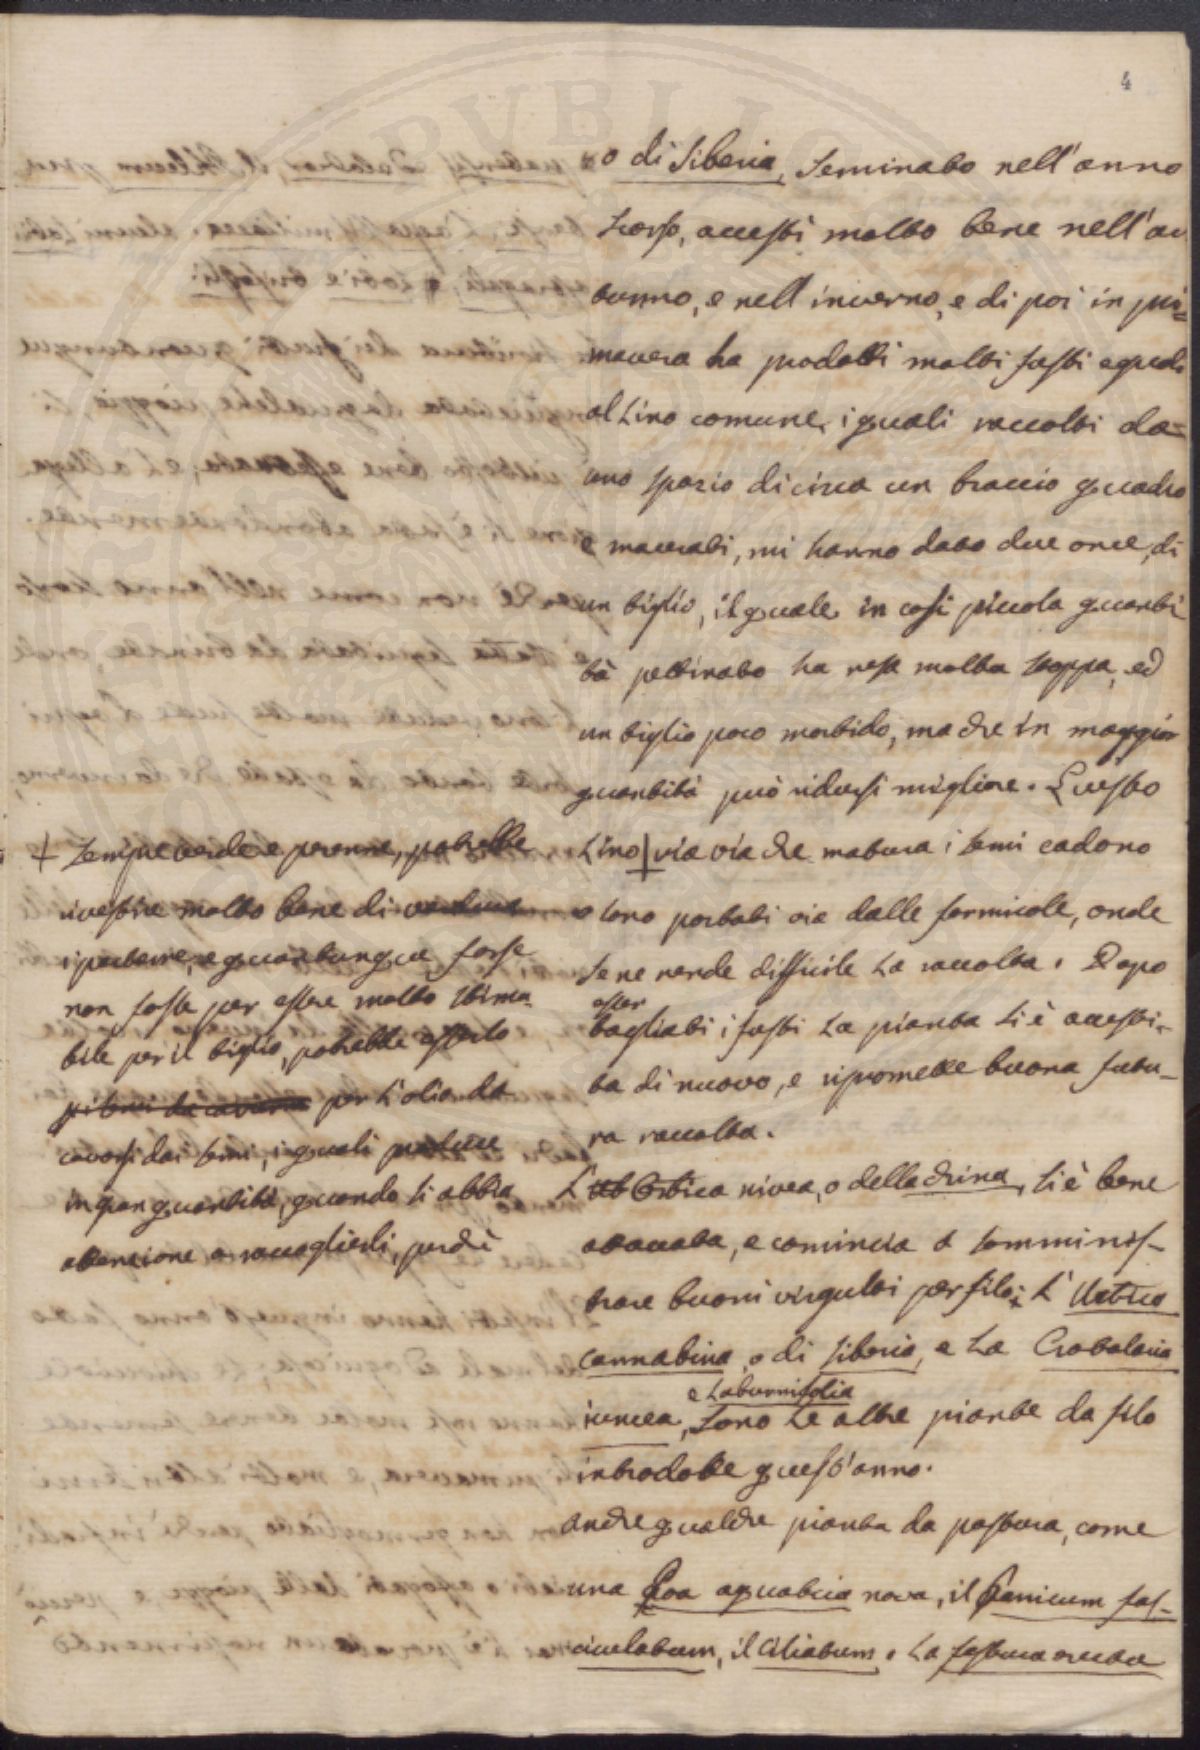 4
o di Siberia, seminato nell'anno
scorso, accestì molto bene nell'au
tunno, e nell'inverno, e di poi in pri=
mavera ha prodotti molti fusti eguali
al Lino comune, i quali raccolti da=
uno spazio di circa un braccio quadro
e macerati, mi hanno dato due once, di
un tiglio, il quale in così piccola quanti
tà pettinato ha reso molta stoppa, ed
un tiglio poco morbido, ma che in maggior
quantità può ridursi migliore. Questo
Lino + via via che matura i semi cadono
o sono portati via dalle formicole, onde
se ne rende difficile la raccolta. Dopo
esser
tagliati i fusti la pianta si è accesti-
ta di nuovo, e ripromette buona futu-
ra raccolta.
L'Urtica nivea, o della China, si è bene
attaccata, e comincia a somminis-
trare buoni virgulti per filo; L'Urtica
cannabina, o di Siberia, e la Crotalaria
e Laburnifolia
iuncea, sono le altre piante da filo
introdotte quest'anno.
Anche qualche pianta da pastura, come
una Poa aquatica nova, il Panicum fas-
ciculatum, il Ciliatum, la festuca
+ sempre verde e perenne, potrebbe
rivestire molto bene di verdura
i patterre, e quantunque forse
non fosse per essere molto stima-
bile per il tiglio, potrebbe esserlo
per l'olio da
cavarsi dai semi, i quali produce
in gran quantità, quando si abbia
attenzione a raccoglierli, perchè